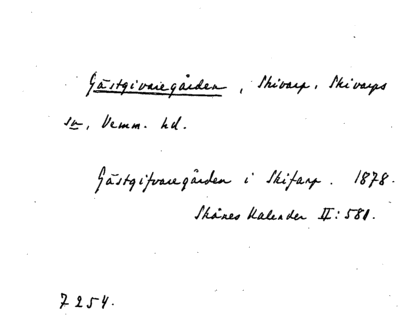 Gästgivaregården, Skivarp, Skivarps
sn, Vemm. hd.
Gästgifvaregården i Skifarp. 1878.
Skånes Kalender II:581.
7254.